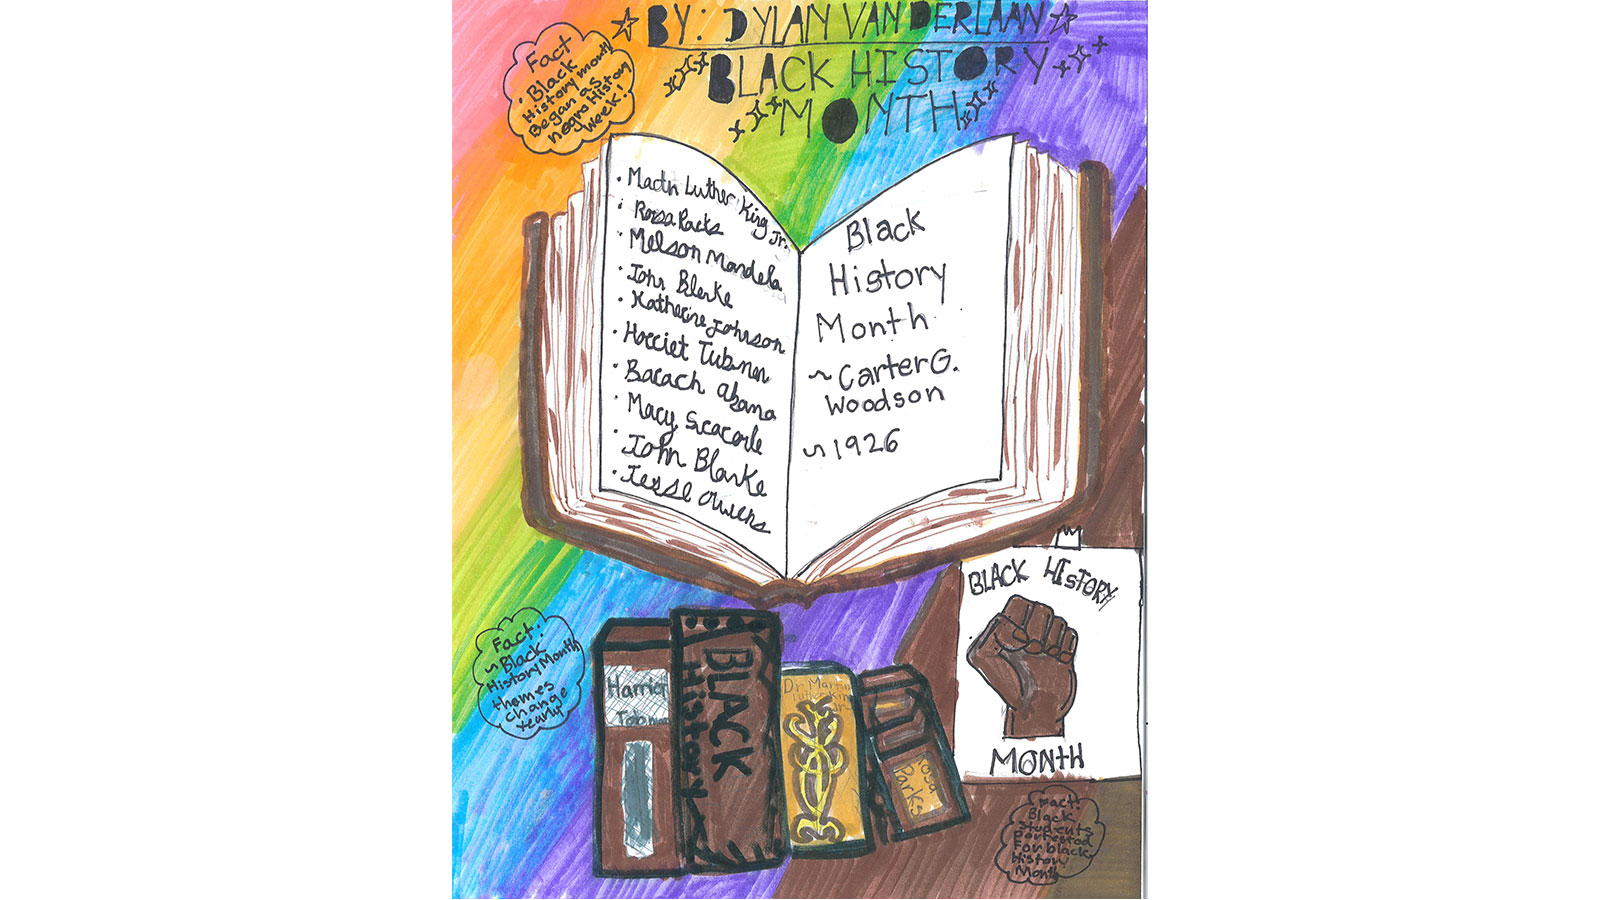 BY: DYLAN VANDERLAAN
BLACK HISTORY
MONTH
Fact
• Black
History month
Began as
negro History
week!
• Martn Luther King Jr.
• Rosa Parks
• Melson Mandela
• John Blarke
• Katherine Johnson
• Harriet Tubman
• Barach Obama
• Mary Seacole
• John Blarke
• Jesse Owens
Black
History
Month
~ Carter G.
Woodson
~ 1926
Fact:
~ Black
History Month
themes
change
yearly
Harriet
Tobman
BLACK
History
Dr Martin
Luther King
Jr
Rosa
Parks
BLACK HIStORY
MONtH
Fact:
Black
Students
portested
For black
History
Month